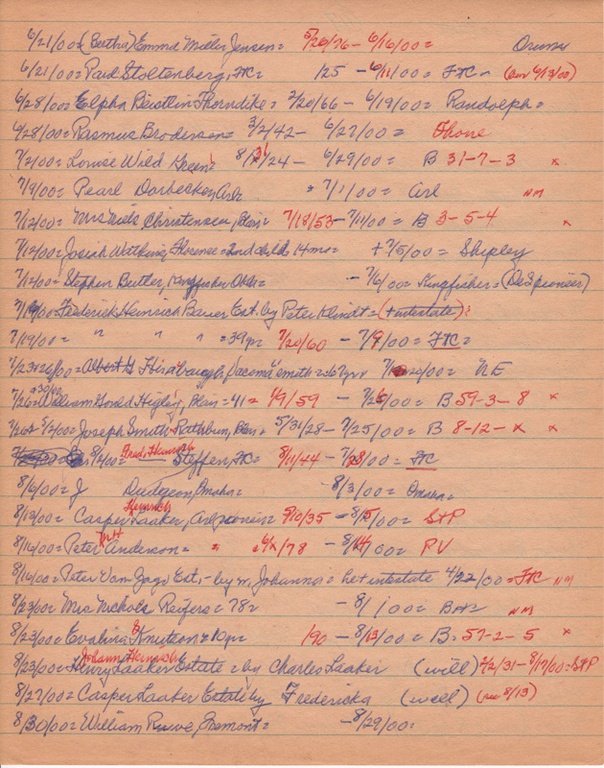 6/21/00=(Bertha) Emma Miller Jensen= 5/26/76 - 6/16/00=
6/21/00=Paul Stoltenberg, FC= 125 - 6/11/00= FTC - (Bur 6/13/00)
6/28/00=Elpha Thorndike= 2/20/66 - 6/19/00= Randolph=
6/28/00=Rasmus Brodersen= 3/2/42 - 6/27/00=
7/2/00=Louise Wild Green= 8/31/24 - 6/29/00= B 31-7-3 x
7/9/00= Pearl Dorbecker, Arl= = 7/1/00= Arl NM
7/12/00= Mrs Niels Christensen, Blair= 7/18/53 - 7/11/00= B 3-5-4 x
7/12/00=Josiah Watkins, Florence=2nd child 14 mo= +7/5/00= Shipley
7/12/00= Stephen Butler, Kingfisher Okla= - 7/6/00= Kingfisher=(DeSpioneer)
7/19/00=Frederick Heinrich Bauer Est. by Peter Klindt=(+intestate)
7/19/00= " " " =39yr 7/20/60 - 7/9/00= FTC=
7/23+26/00= Albert G Hirabaugh, Tacoma NE
7/26+ 8/2/00= William Gould Higley, Blair=41= 1/9/59 - 7/26/00= B 59-3-8 x
7/26+ 8/2/00= Joseph Smith Rathbun, Blair= 5/31/28 - 7/25/00= B 8-12-x x
8/2/00= Fred. Heinrich Steffen, FC= 8/11/44 - 7/28/00= FC
8/6/00= J Dudgeon, Omaha= 8/3/00= Omaha=
8/13/00= Casper Heinrich Laaker, Arl pioneer= 5/10/35 - 8/5/00= StP
8/16/00= Peter Anderson= - 8/14/00= PV
8/16/00= Peter Van Zago Est,- by w, Johanna= he + intestate 4/22/00= FTC NM
8/23/00= Mrs Nichols Reifers=78= - 8/ /00= NM
8/23/00= Evalina Knutson=10yr 190 - 8/13/00= B-57-2-5 x
8/23/00= Henry Johann Heinrich Laaker Estate= by Charles Laaker (will) 2/2/31-8/17/00=StP
8/27/00= Casper Laaker Estate by Fredericka (will) (see 8/13)
8/30/00= William Ruwe, Fremont= -8/29/00=